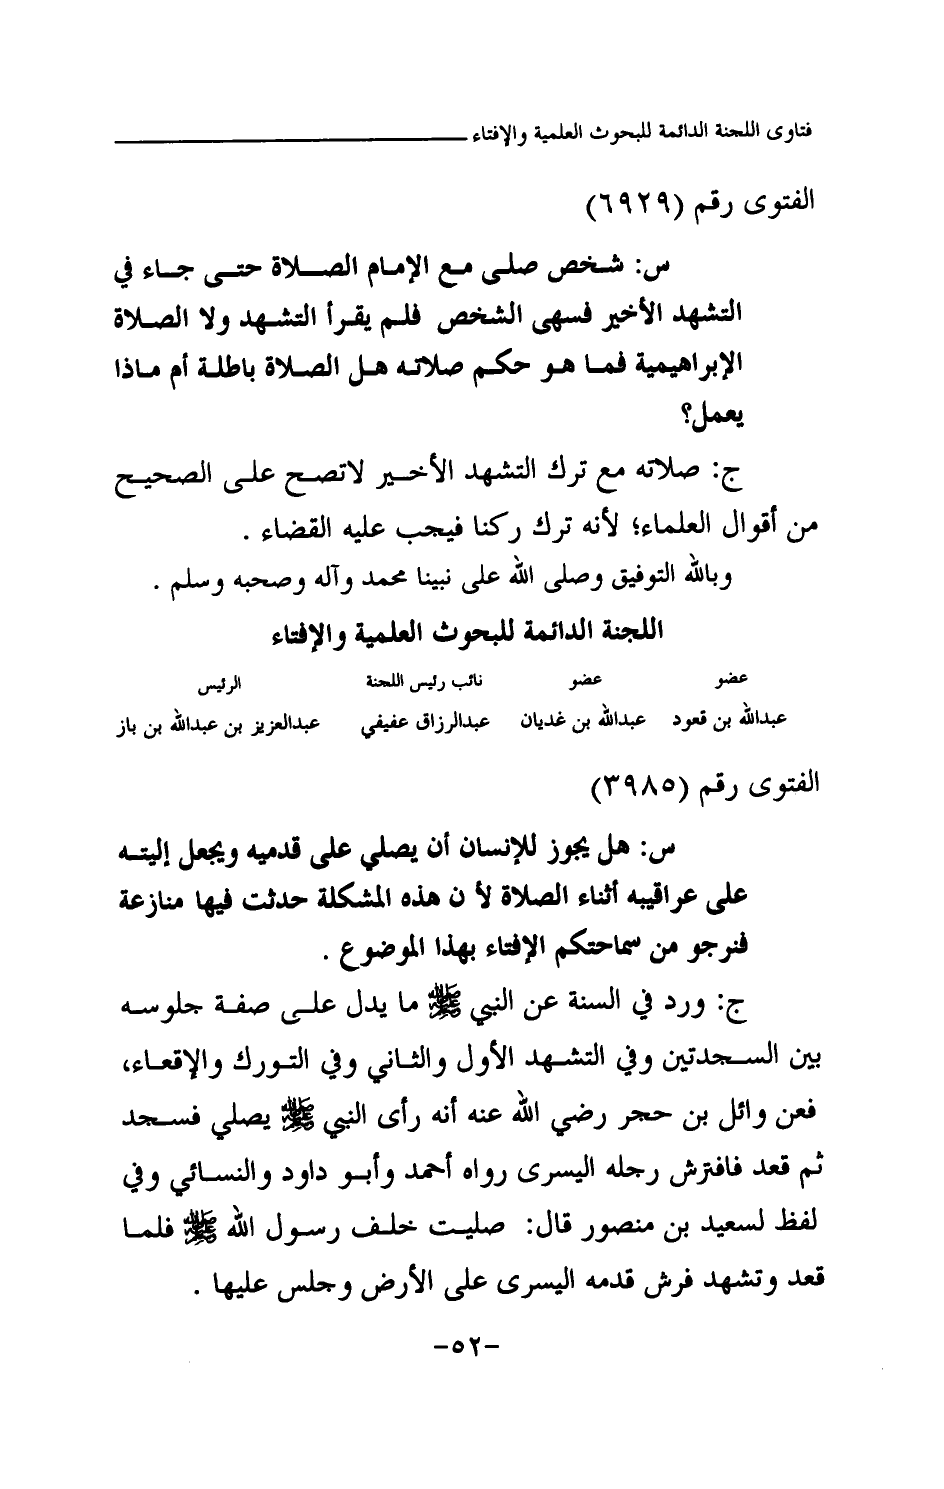 فتاوى اللجنة الدائمة للبحوث العلمية والإفتاء
الفتوى رقم (٦٩٢٩)
س: شخص صلى مع الإمام الصلاة حتى جاء في
التشهد الأخير فسهى الشخص فلم يقرأ التشهد ولا الصلاة
الإبراهيمية فما هو حكم صلاته هل الصلاة باطلة أم ماذا
يعمل؟
ج: صلاته مع ترك التشهد الأخير لاتصح على الصحيح
من أقوال العلماء؛ لأنه ترك ركنا فيجب عليه القضاء .
وبالله التوفيق وصلى الله على نبينا محمد وآله وصحبه وسلم .
اللجنة الدائمة للبحوث العلمية والإفتاء
عضو عضو نائب رئيس اللجنة الرئيس
عبدالله بن قعود عبدالله بن غديان عبدالرزاق عفيفي عبدالعزيز بن عبدالله بن باز
الفتوى رقم (٣٩٨٥)
س: هل يجوز للإنسان أن يصلي على قدميه ويجعل إليته
على عراقيبه أثناء الصلاة لأ ن هذه المشكلة حدثت فيها منازعة
فنرجو من سماحتكم الإفتاء بهذا الموضوع .
ج: ورد في السنة عن النبي ﷺ ما يدل على صفة جلوسه
بين السجدتين وفي التشهد الأول والثاني وفي التورك والإقعاء،
فعن وائل بن حجر رضي الله عنه أنه رأى النبي ﷺ يصلي فسجد
ثم قعد فافترش رجله اليسرى رواه أحمد وأبو داود والنسائي وفي
لفظ لسعيد بن منصور قال: صليت خلف رسول الله ﷺ فلما
قعد وتشهد فرش قدمه اليسرى على الأرض وجلس عليها .
-٥٢-